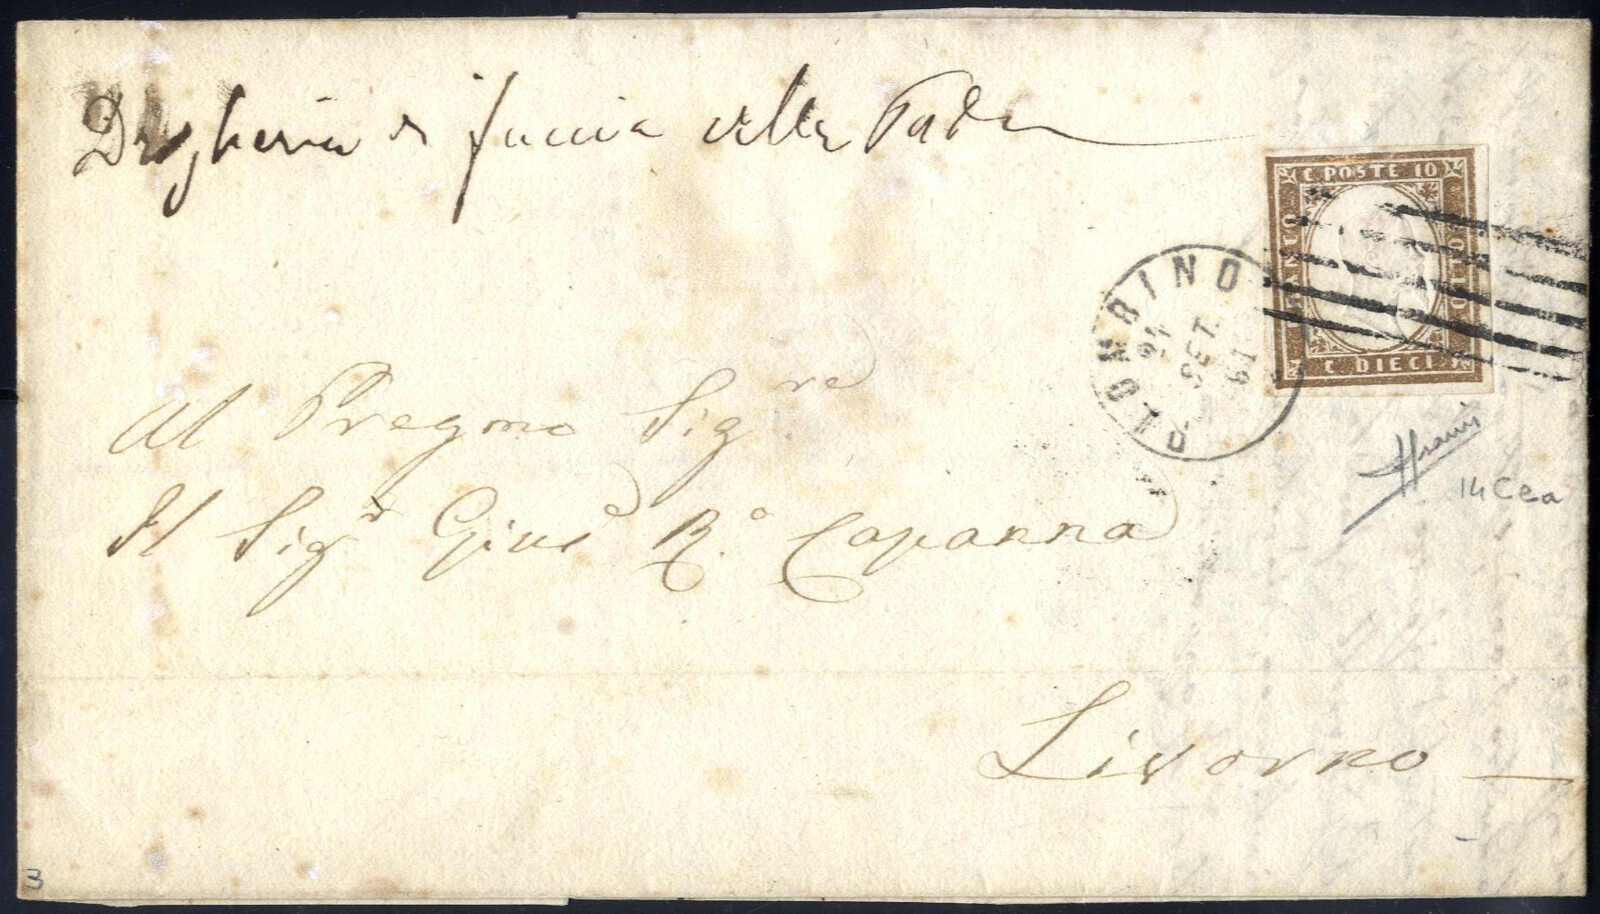 Drogheria di faccia alla
C POSTE 10
FRANCO
BOLLO
C DIECI
PIOMBINO
24
SET.
61
Al Pregmo Sigre
Il Sigr Giuse R.o Capanna
Livorno
14Cea
3